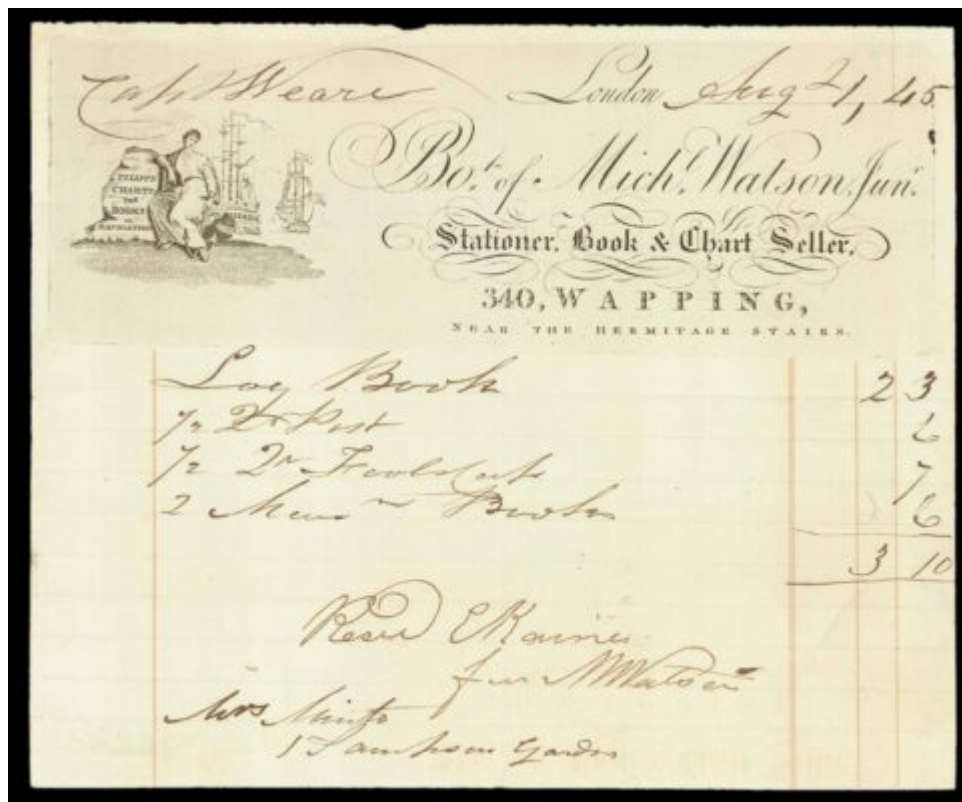 Capt Weare
London Aug 21, 45
PILOTS
CHARTS
AND
BOOKS
OF
NAVIGATION
Bot. of Michl. Watson Junr.
Stationer, Book & Chart Seller,
340, WAPPING,
NEAR THE HERMITAGE STAIRS.
Log Book 2 3
1/2 Qr Post 6
1/2 Qr Foolscap 7
2 Memm Books 6
3 10
Recd E Kaines
for M Watson
Mrs Minto
1 Gardns